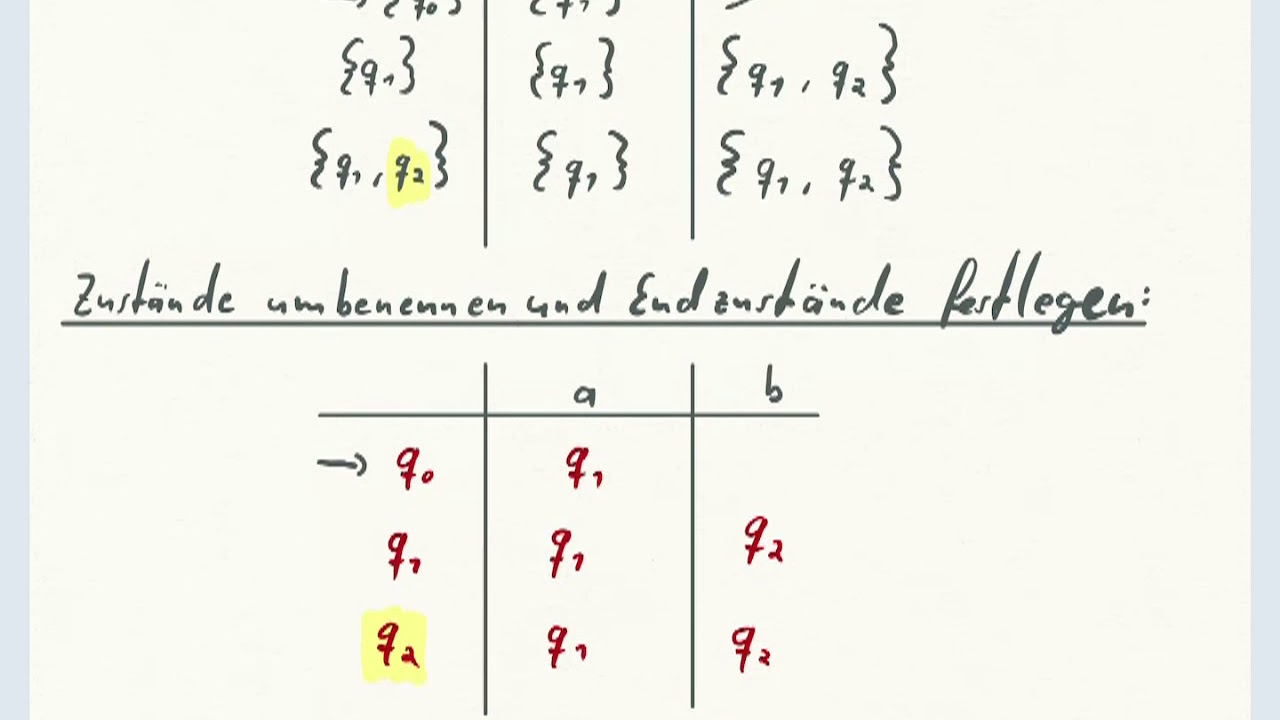 → {q₀} {q₁}
{q₁} {q₁} {q₁, q₂}
{q₁, q₂} {q₁} {q₁, q₂}
Zustände umbenennen und Endzustände festlegen:
a b
→ q₀ q₁
q₁ q₁ q₂
q₂ q₁ q₂